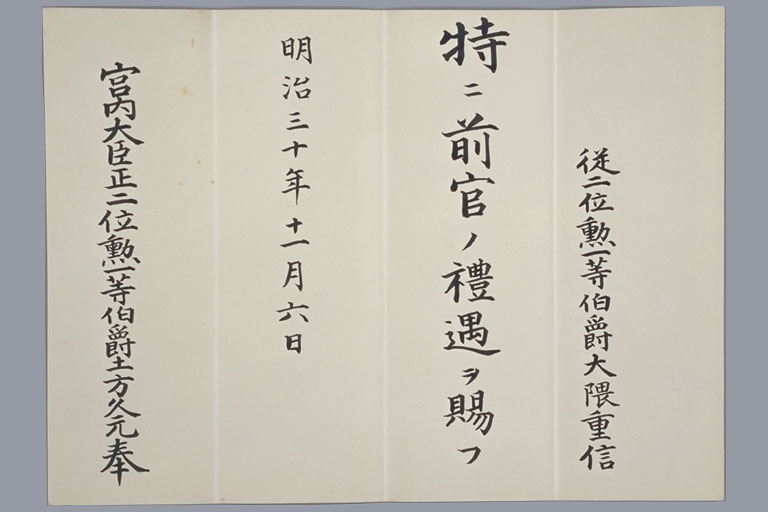 従二位勲一等伯爵大隈重信
特ニ前官ノ禮遇ヲ賜フ
明治三十年十一月六日
宮内大臣正二位勲一等伯爵土方久元奉